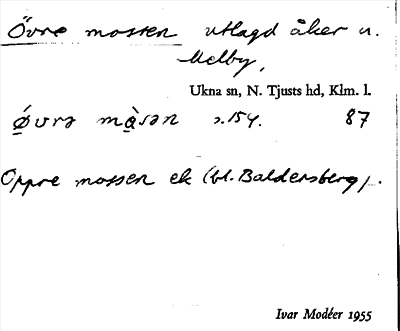 Övre mossen utlagd åker u.
Melby,
Ukna sn, N. Tjusts hd, Klm. l.
ǿvrə må̱̀sən s. 154. 87
Oppre mossen ek (bl. Baldersberg).
Ivar Modéer 1955